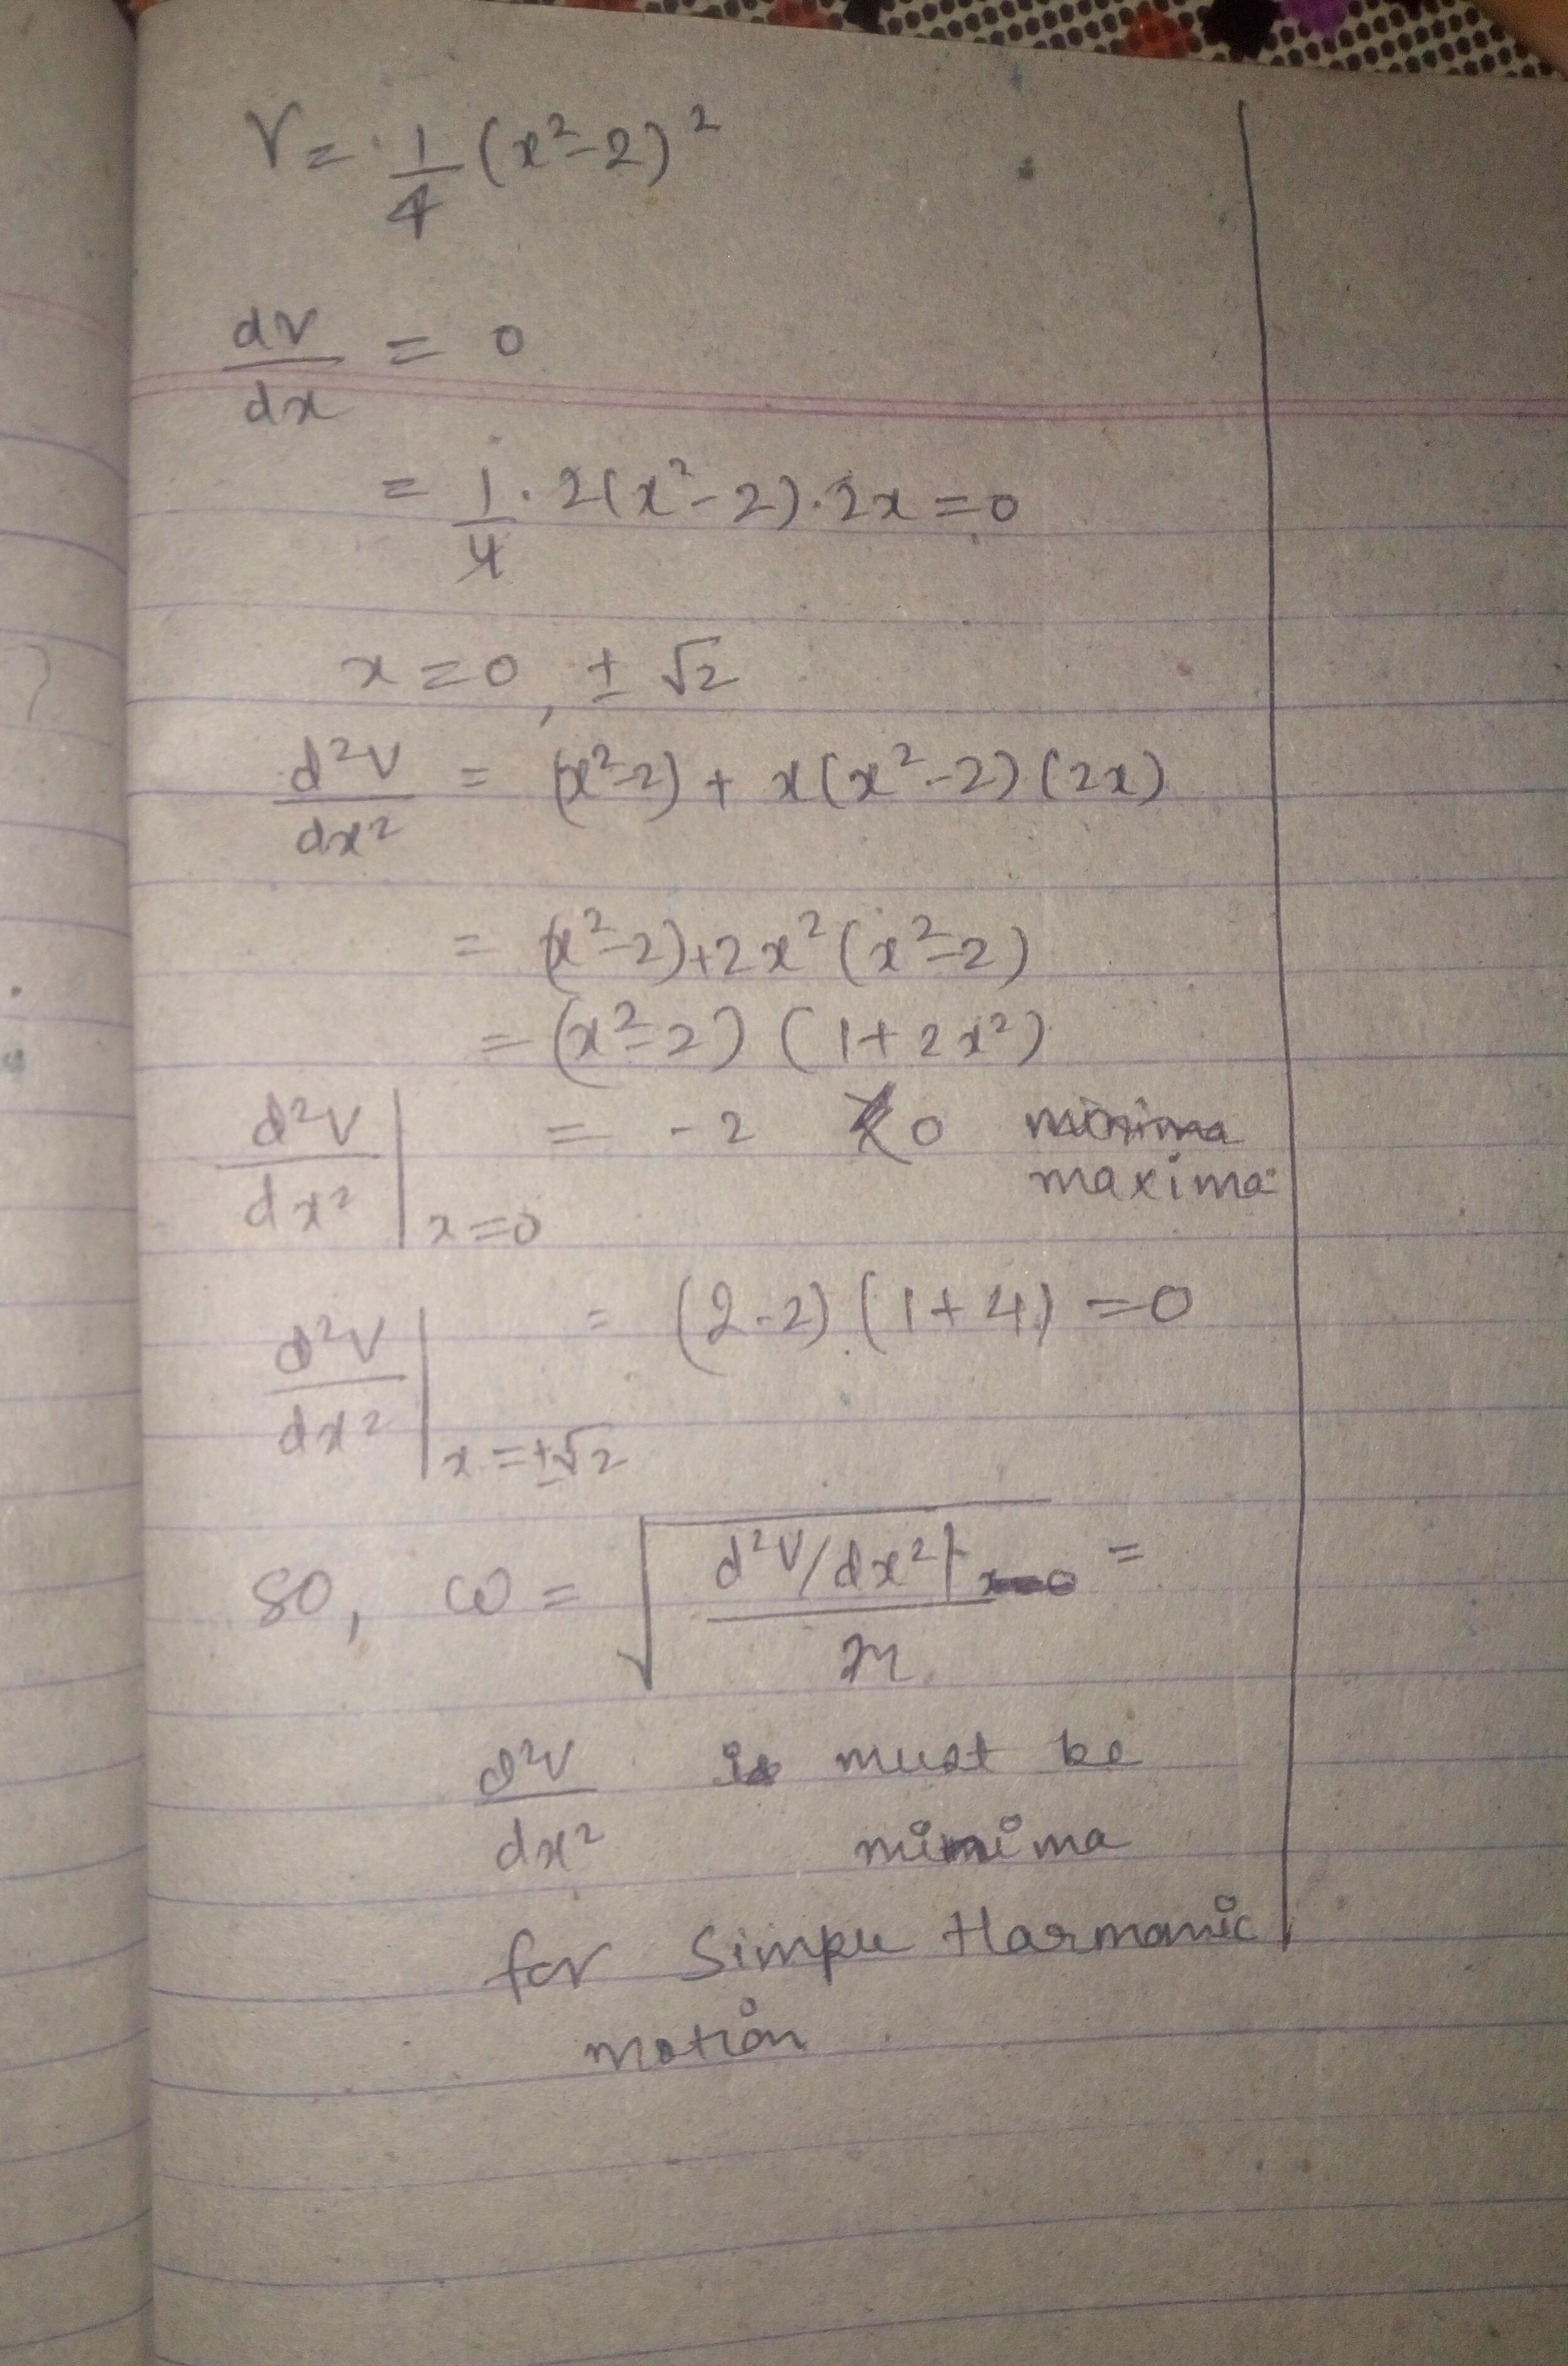 V = 1/4 (x² - 2)²
dV/dx = 0
= 1/4 · 2(x² - 2) · 2x = 0
x = 0, ± √2
d²V/dx² = (x² - 2) + x(x² - 2)(2x)
= (x² - 2) + 2x²(x² - 2)
= (x² - 2)(1 + 2x²)
d²V/dx² |x=0 = -2 < 0 minima maxima
d²V/dx² |x=±√2 = (2-2)(1+4) = 0
so, ω = √(d²V/dx²| x=0 / m) =
d²V/dx² is must be
minima
for Simple Harmonic
motion